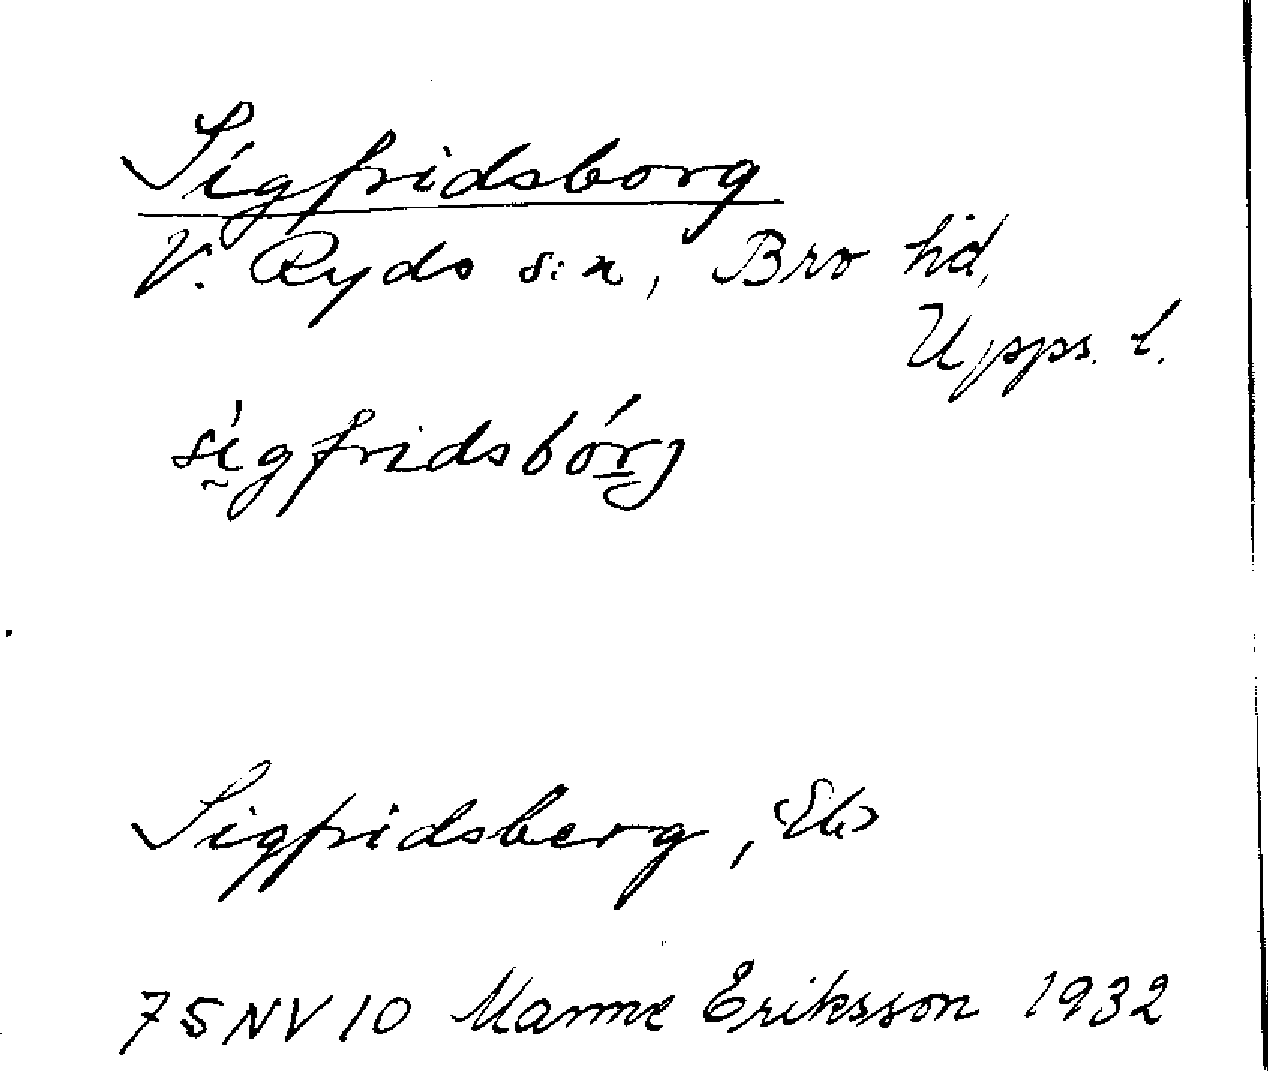 Sigfridsborg
V. Ryds s:n, Bro hd,
Upps. l.
sigfridsbórj
Sigfridsberg,
75NV10 Manne Eriksson 1932